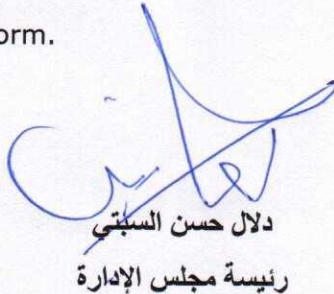 orm.
دلال حسن السبتي
رئيسة مجلس الإدارة